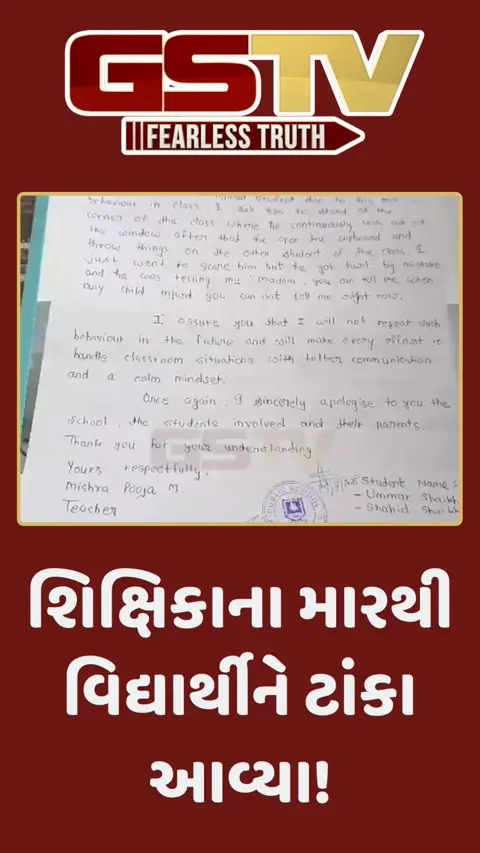 GSTV
FEARLESS TRUTH
behaviour in class I ask him to stand at the
corner of the class where he continuously
the window after that he open the cupboard and
throw things on the other student of the class. I
just went to scare him but he got hurt by mistake
and he was telling me "madam, you can tell me when
any child injured you can not tell me right now.
I assure you that I will not repeat such
behaviour in the future and will make every effort to
handle classroom situations with better communication
and a calm mindset.
Once again, I sincerely apologise to you the
school, the students involved and their parents.
Thank you for your understanding
Yours respectfully,
Mishra Pooja M.
Teacher
Student Name :-
- Ummar Shaikh
- Shahid Shaikh
GSTV
શિક્ષિકાના મારથી
વિદ્યાર્થીને ટાંકા
આવ્યા!